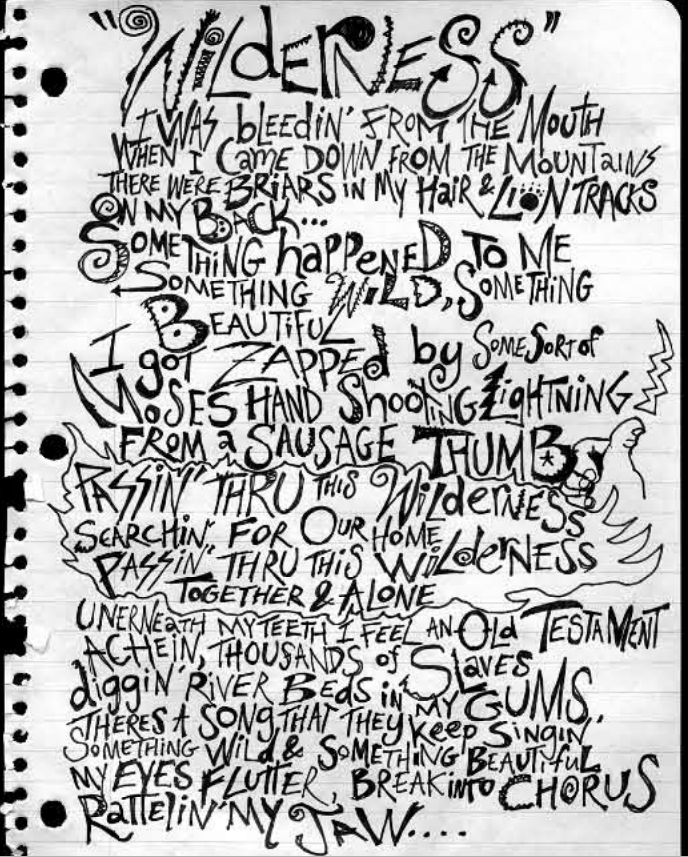 "WiLdERNESS"
I WAS bLEEdiN' FROM THE MOUTH
WHEN I CAME DOWN FROM THE MOUNTaiNS
THERE WERE BRiARS iN My HaiR & LiON TRACKS
ON MY BACK...
SOMETHiNG happENED TO ME
SOMETHING WiLD, SOMETHiNG
BEAUTiFUL
I gOT ZAPPEd by SOME SORT Of
MOSES HAND ShooTiNG LigHTNiNG
FROM a SAUSAGE THUMB
PASSiN' THRU THiS WildERNESS
SEARCHiN' FOR OUR HOME
PASSiN' THRU THiS WiLdeRNESS
TOGETHER & ALONE
UNERNEaTH MY TEETH I FEEL AN OLd TESTAMENT
ACHEiN, THOUSANDS Of SLAVES
diggiN' RiVER BEdS iN MY GUMS,
THERES A SONG THAT THEY KEEp SiNgiN'
SOMETHiNG WiLd & SOMETHiNG BEAUTifuL
MY EYES FLUTTER, BREAK iNTO CHORUS
RaTTELiN' MY JAW....